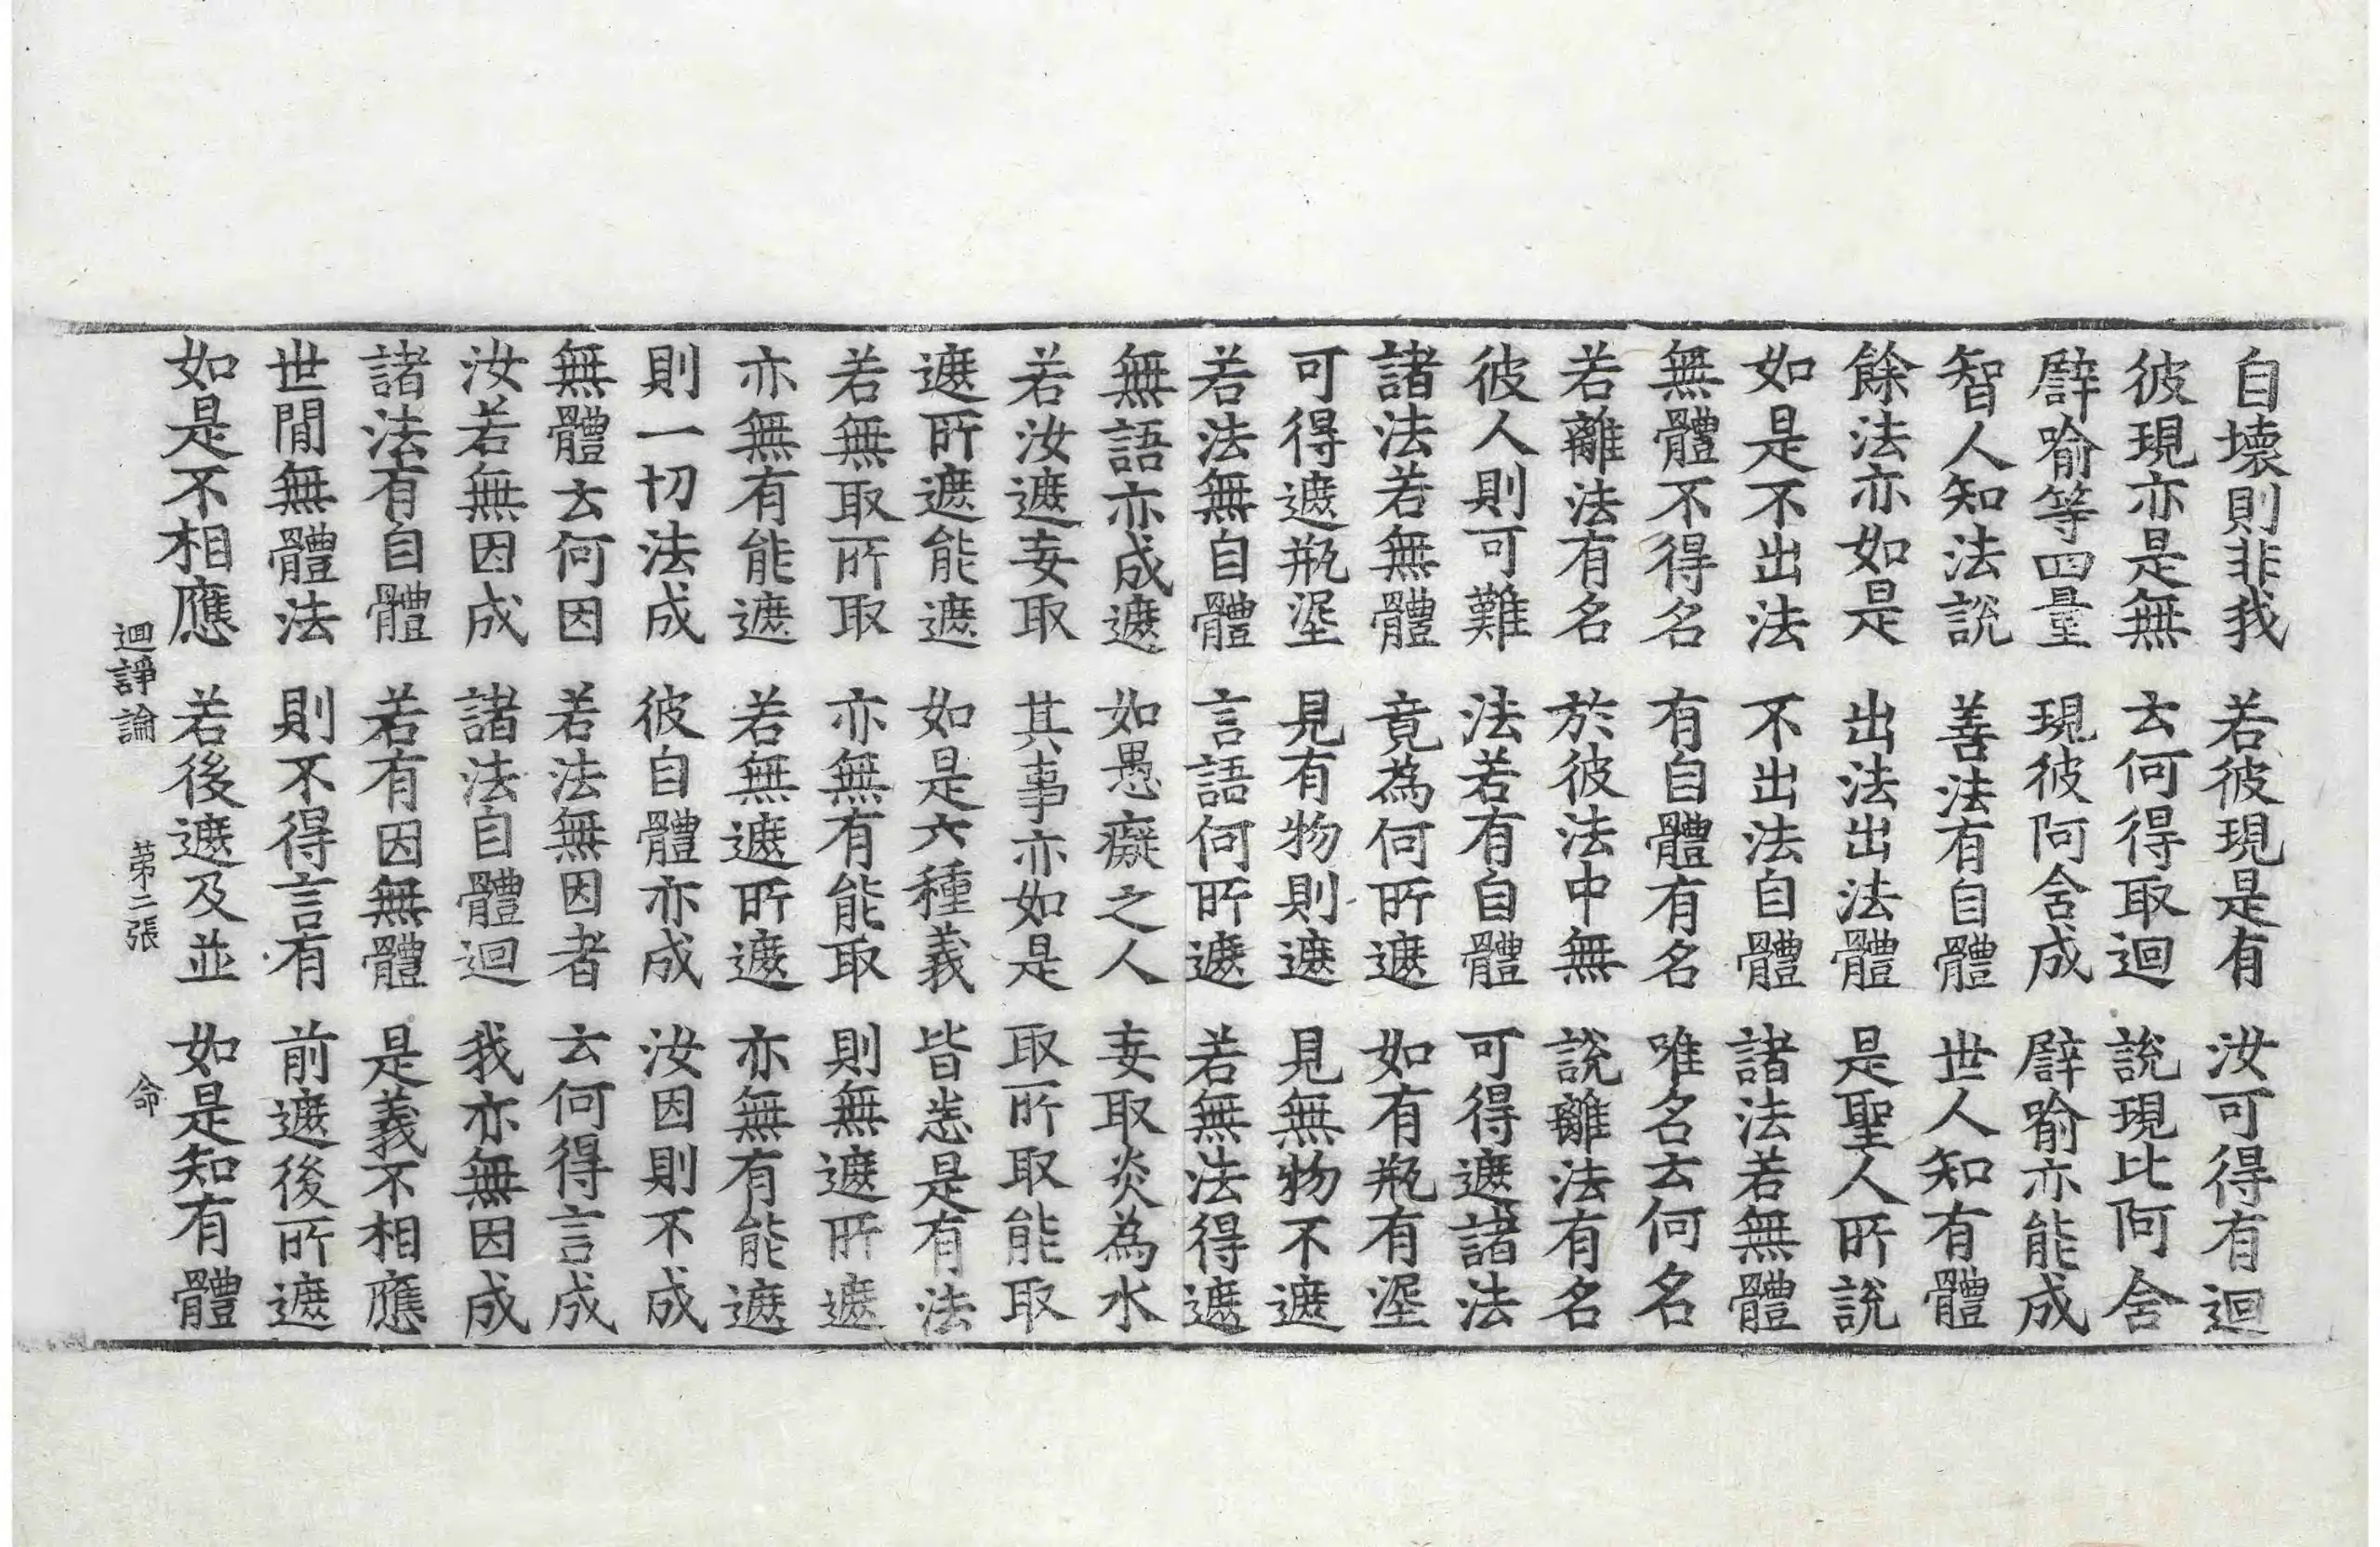 自壞則非我 若彼現是有 汝可得有迴
彼現亦是無 云何得取迴 說現比阿含
譬喻等四量 現彼阿含成 譬喻亦能成
智人知法說 善法有自體 世人知有體
餘法亦如是 出法出法體 是聖人所說
如是不出法 不出法自體 諸法若無體
無體不得名 有自體有名 唯名云何名
若離法有名 於彼法中無 說離法有名
彼人則可難 法若有自體 可得遮諸法
諸法若無體 竟為何所遮 如有瓶有埿
可得遮瓶埿 見有物則遮 見無物不遮
若法無自體 言語何所遮 若無法得遮
無語亦成遮 如愚癡之人 妄取炎為水
若汝遮妄取 其事亦如是 取所取能取
遮所遮能遮 如是六種義 皆悉是有法
若無取所取 亦無有能取 則無遮所遮
亦無有能遮 若無遮所遮 亦無有能遮
則一切法成 彼自體亦成 汝因則不成
無體云何因 若法無因者 云何得言成
汝若無因成 諸法自體迴 我亦無因成
諸法有自體 若有因無體 是義不相應
世閒無體法 則不得言有 前遮後所遮
如是不相應 若後遮及並 如是知有體
迴諍論 第二張 命